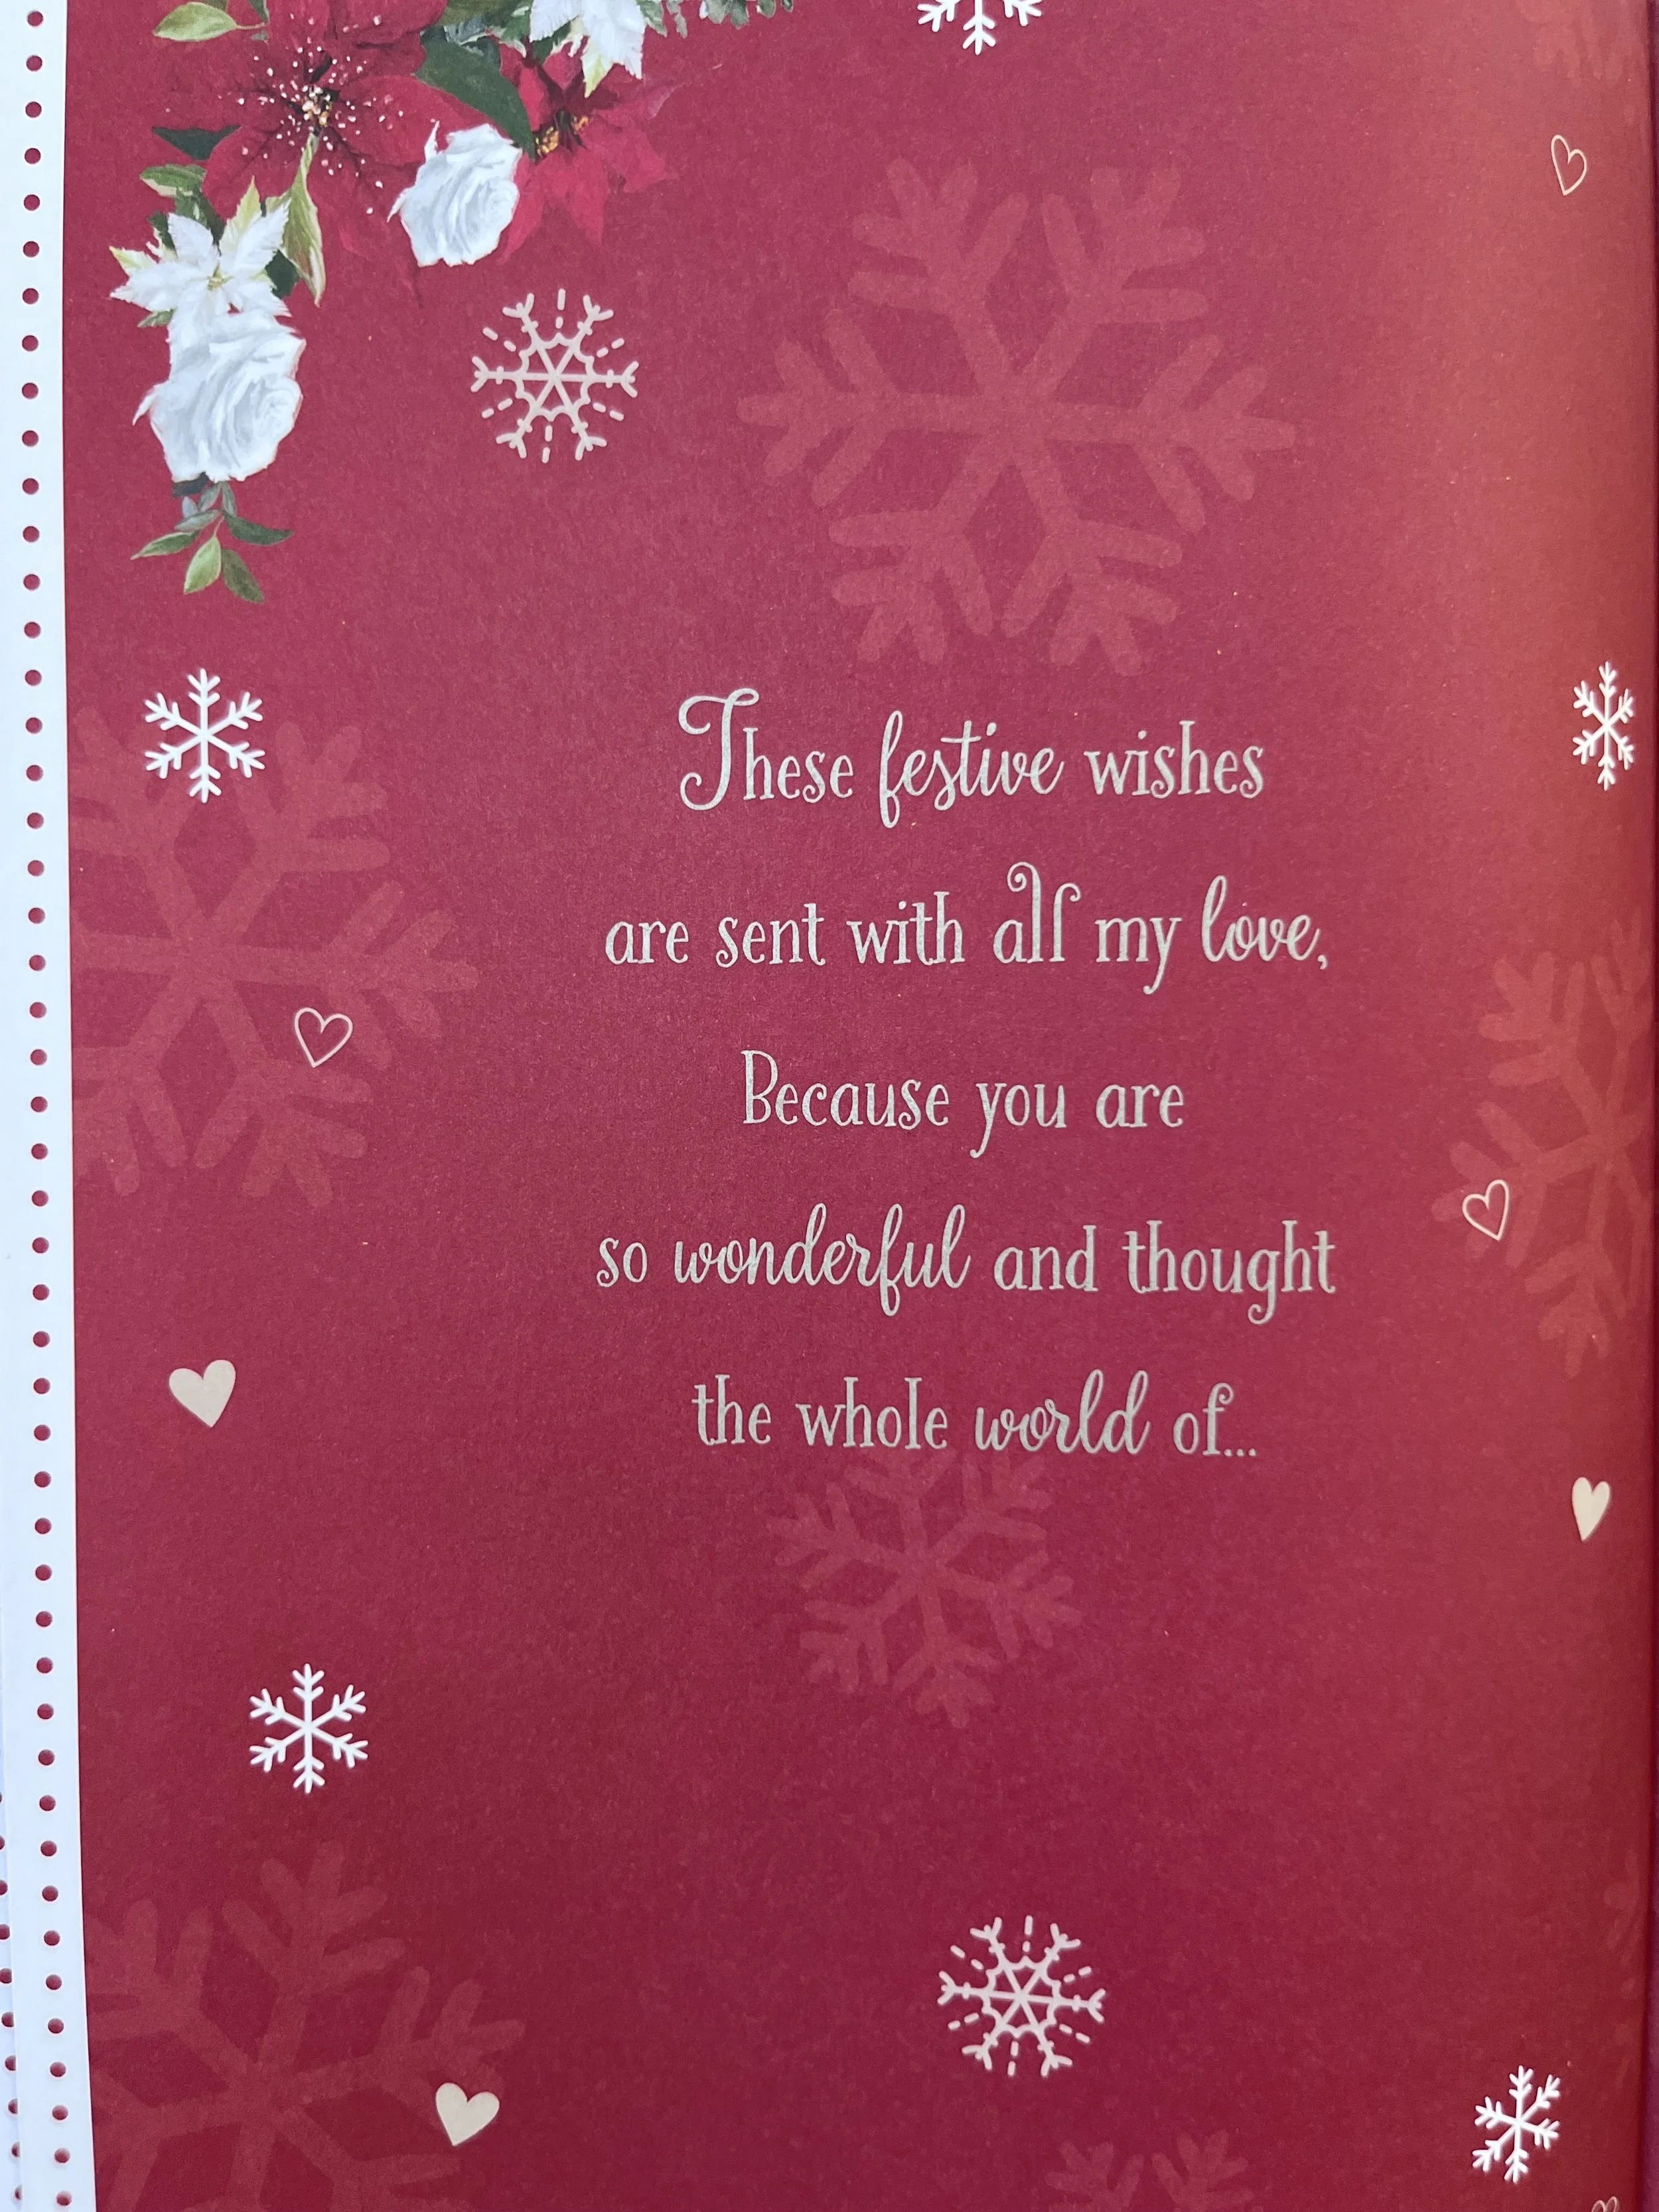 These festive wishes
are sent with all my love,
Because you are
so wonderful and thought
the whole world of...